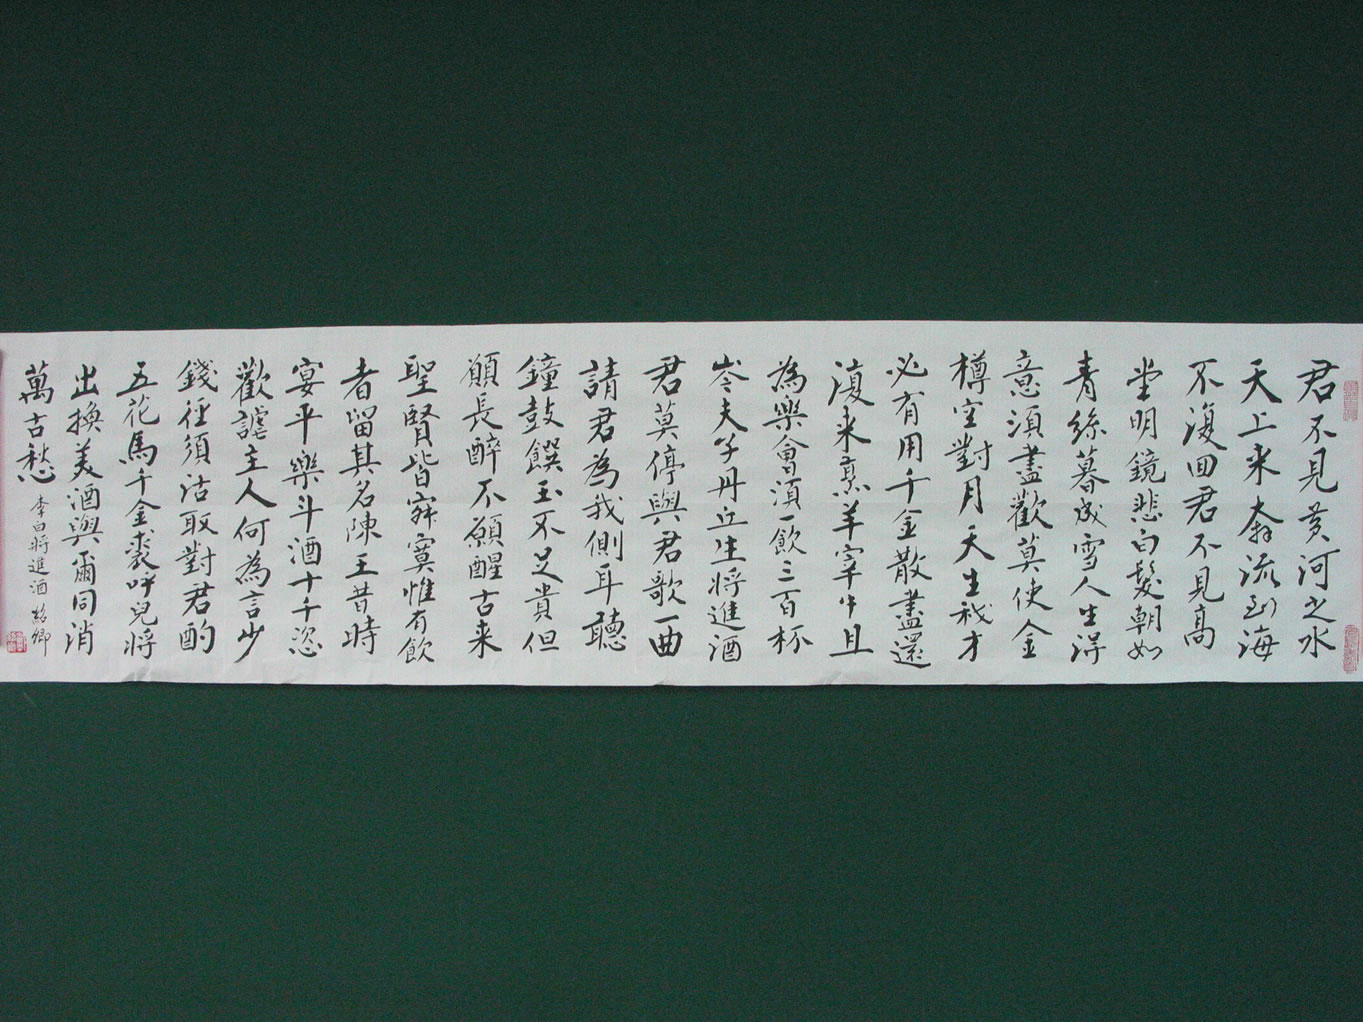 君不見黃河之水
天上来奔流到海
不復回君不見高
堂明鏡悲白髮朝如
青絲暮成雪人生得
意須盡歡莫使金
樽空對月天生我才
必有用千金散盡還
復来烹羊宰牛且
為樂會須一飲三百杯
岑夫子丹丘生將進酒
君莫停與君歌一曲
請君為我側耳聽
鐘鼓饌玉不足貴但
願長醉不願醒古来
聖賢皆寂寞惟有飲
者留其名陳王昔時
宴平樂斗酒十千恣
歡謔主人何為言少
錢徑須沽取對君酌
五花馬千金裘呼兒將
出換美酒與爾同消
萬古愁
李白將進酒 卿